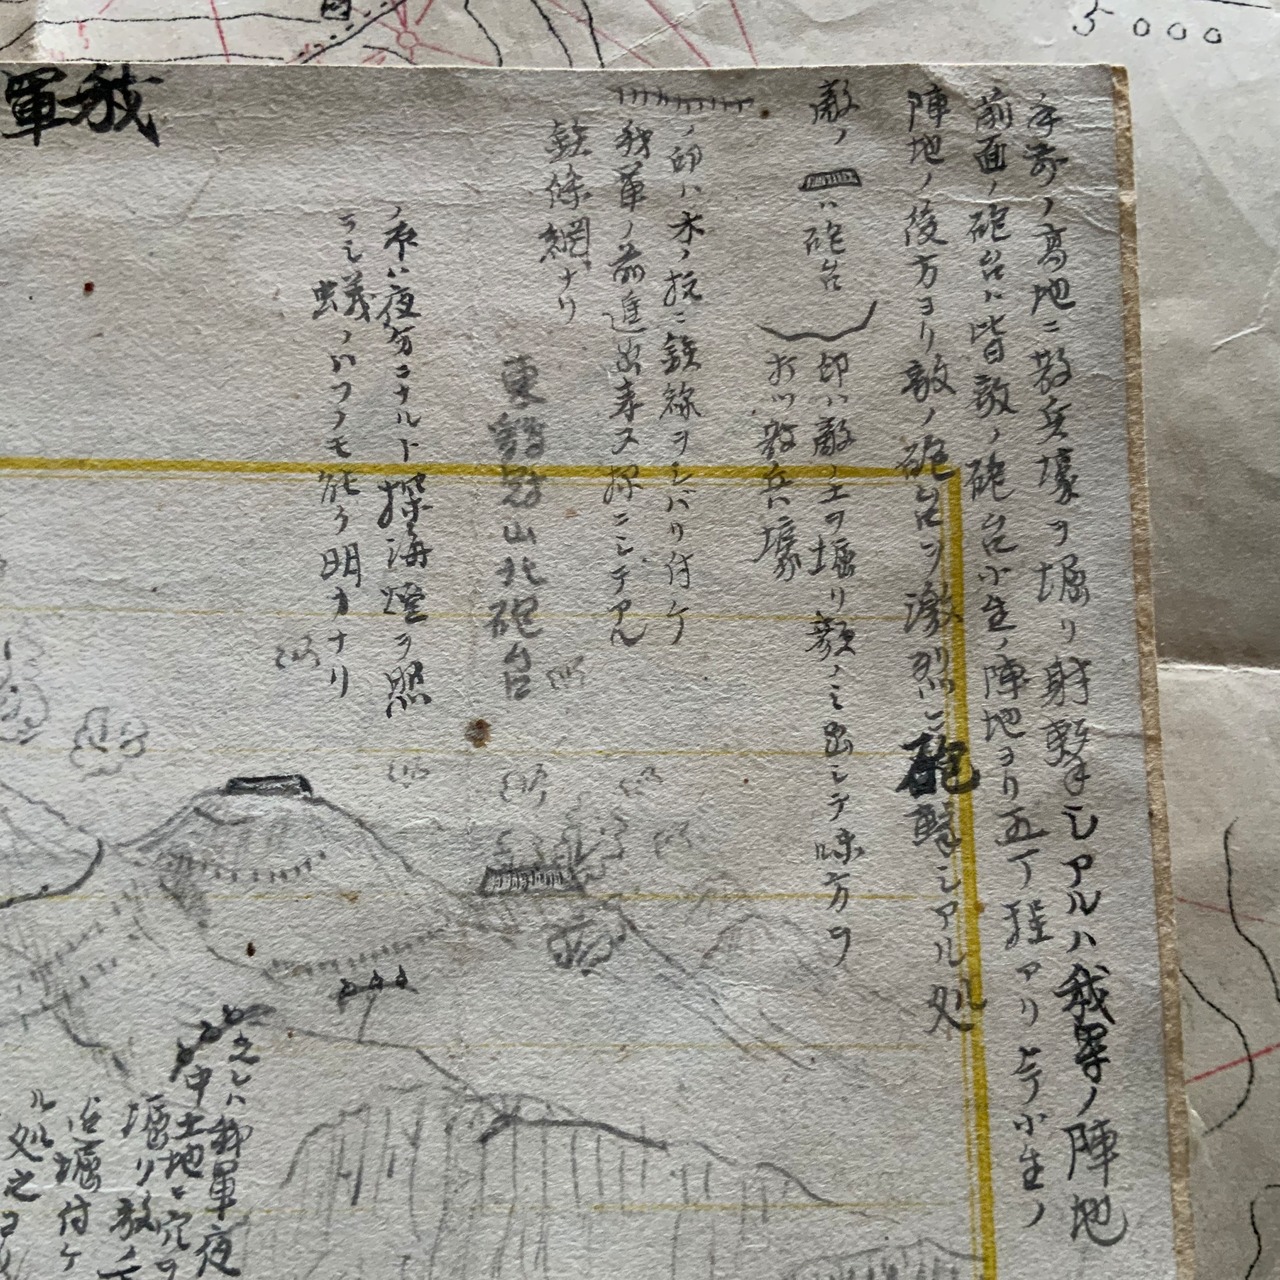 手前ノ高地ニ散兵壕ヲ堀リ射撃シアルハ我軍ノ陣地
前面ノ砲台ハ皆敵ノ砲台小生ノ陣地ヨリ五丁程アリ今小生ノ
陣地ノ後方ヨリ敵ノ砲台ヲ激烈ニ砲撃シアル処
敵ノ ハ砲台
印ハ敵ノ土ヲ堀リ顔ノミ出シテ味方ヲ
打ツ散兵壕
ノ印ハ木ノ抗ニ鉄線ヲシバリ付ケ
我軍ノ前進出来ヌ様ニシテアル
鉄條網ナリ
東鶏冠山北砲台
ノ赤ハ夜分ニナルト探海燈ヲ照
ラシ蟻ノハフノモ能ク明カナリ
我軍
之レハ我軍夜
中土地ニ穴ヲ
堀リ敵ノ
堀付ケ
ル処之
5000